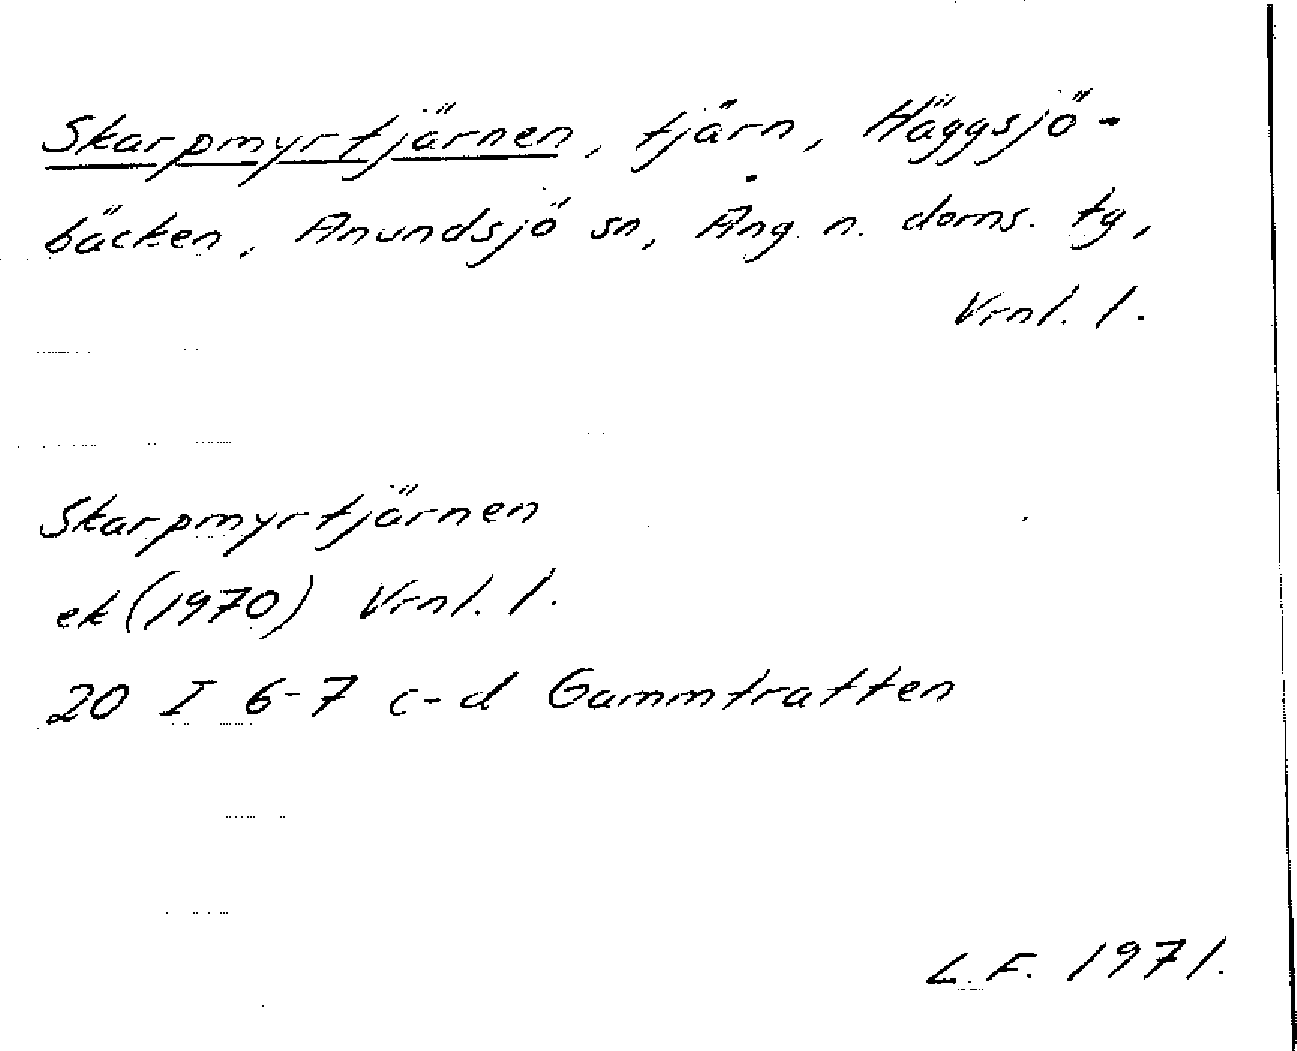 Skarpmyrtjärnen, tjärn, Häggsjö-
bäcken, Anundsjö sn, Ång. n. doms. tg,
Vrnl. l.
Skarpmyrtjärnen
ek (1970) Vrnl. l.
20 I 6-7 c-d Gammtratten
L.F. 1971.